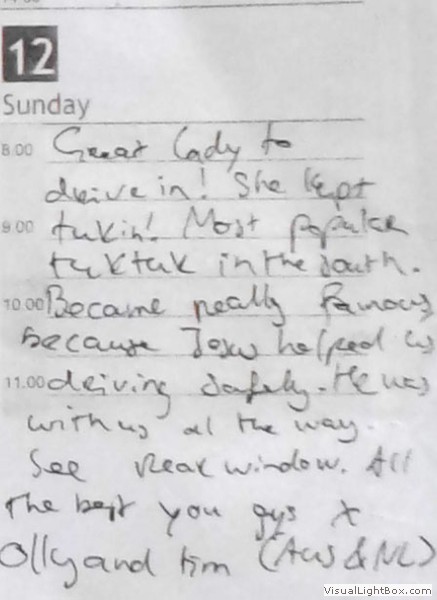 12
Sunday
8.00 Great Lady to
drive in! She kept
9.00 tukin! Most popular
tuktuk in the south.
10.00 Became really famous,
because Jesus helped us
11.00 driving safely. He was
with us al the way.
See rear window. All
the best you guys x
Olly and Tim (Aus & NL)
VisualLightBox.com